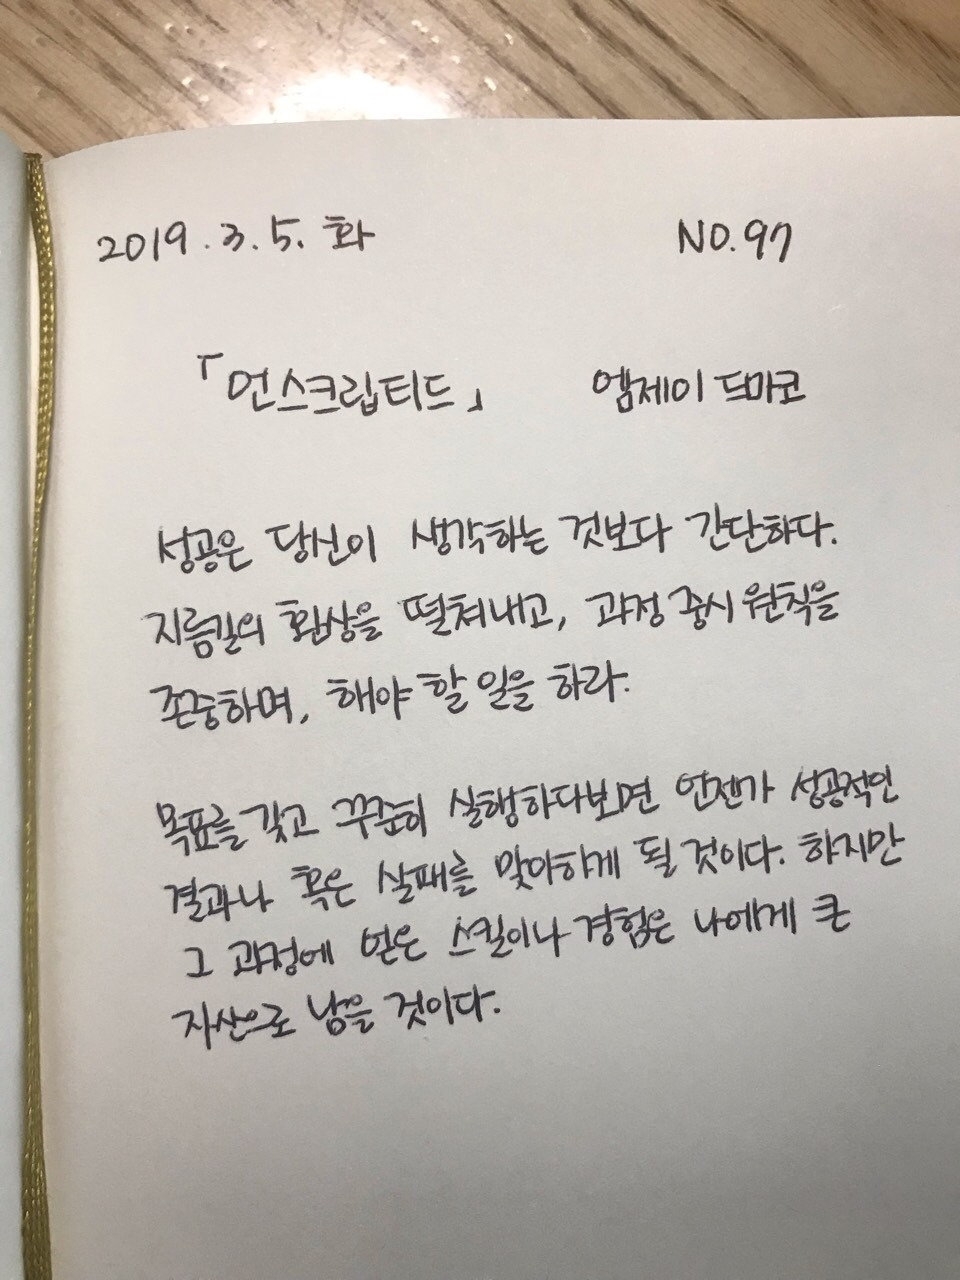 2019. 3. 5. 화
NO. 97
「언스크립티드」 엠제이 드마코
성공은 당신이 생각하는 것보다 간단하다.
지름길의 환상을 떨쳐내고, 과정 중시 원칙을
존중하며, 해야 할 일을 하라.
목표를 갖고 꾸준히 실행하다보면 언젠가 성공적인
결과나 혹은 실패를 맞이하게 될 것이다. 하지만
그 과정에 얻은 스킬이나 경험은 나에게 큰
자산으로 남을 것이다.